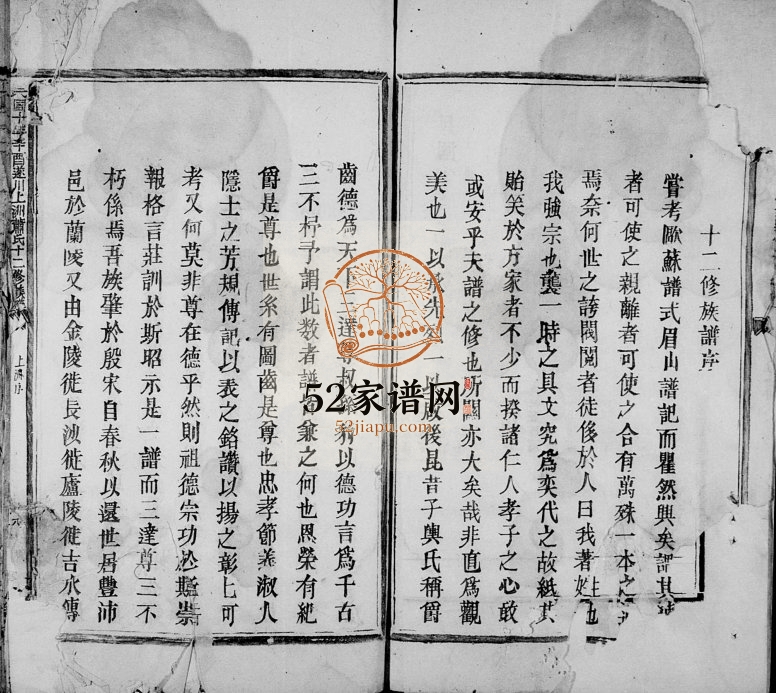 十二修族譜序
嘗考歐蘇譜式眉山譜記而瞿然興矣謂其
者可使之親離者可使之合有萬殊一本之
焉奈何世之誇閥閱者徒侈於人曰我著姓也
我強宗也襲一時之具文究爲奕代之故紙其
貽笑於方家者不少而揆諸仁人孝子之心敢
或安乎夫譜之修也所關亦大矣哉非直爲觀
美也一以 先 一以 後昆昔子輿氏稱爵
齒德爲天下 達尊叔 豹以德功言爲千古
三不朽予謂此数者譜 兼之何也恩榮有紀
爵是尊也世系有圖齒是尊也忠孝節義淑人
隱士之芳規傳記以表之銘讚以揚之彰彰可
考又何莫非尊在德乎然則祖德宗功於斯崇
報格言莊訓於斯昭示是一譜而三達尊三不
朽係焉吾族肇於殷宋自春秋以還世居豐沛
邑於蘭陵又由金陵徙長沙徙廬陵徙吉水傳
民國十年辛酉遂川上洲蕭氏十二修族譜
上洲序
52家谱网
52jiapu.com